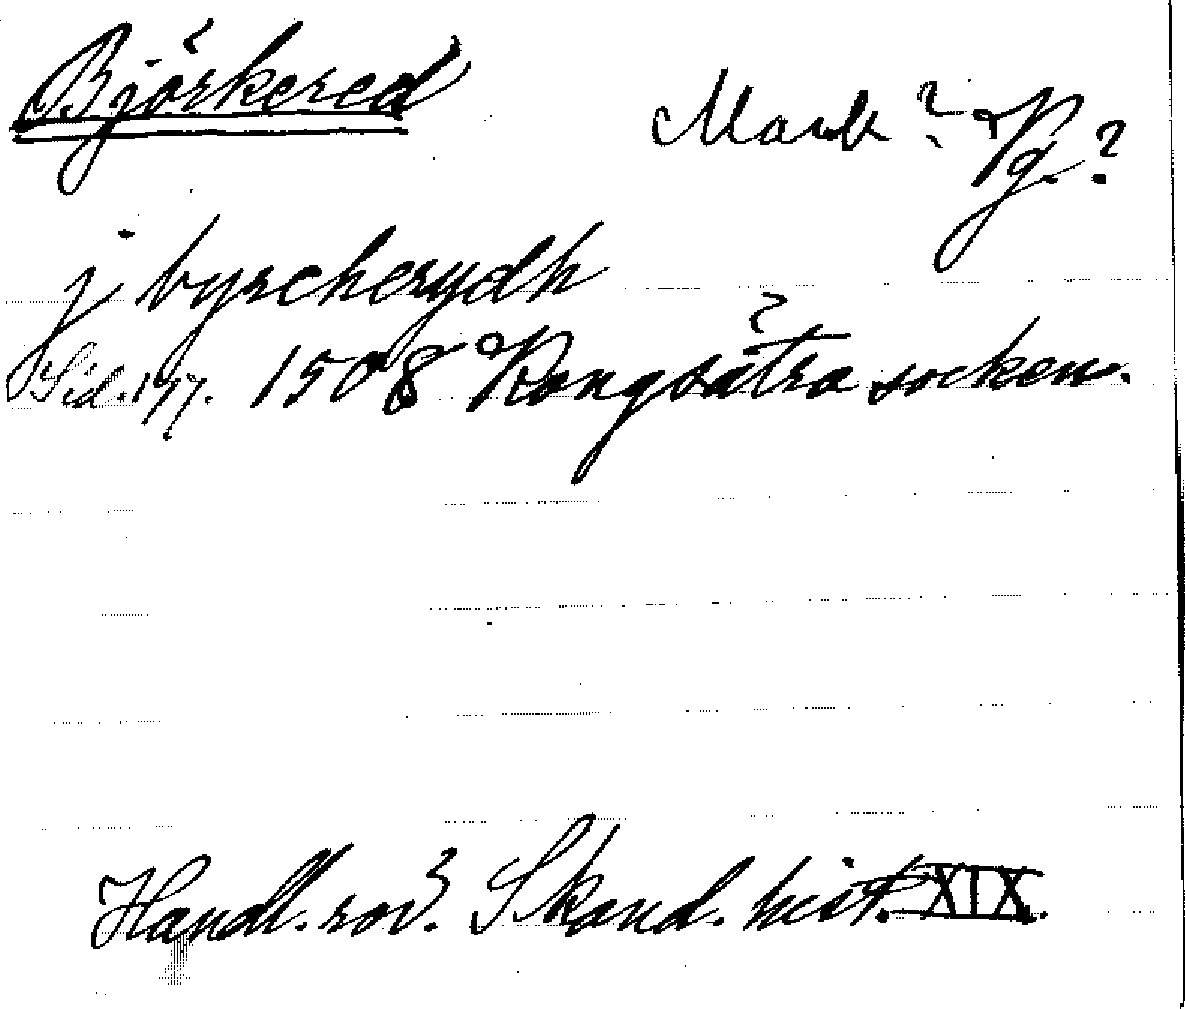 Björkered
Mark? Vg.?
j byrcherydh
Sid. 197. 1508 Kongsätra socken.
Handl. rör. Skand. hist. XIX.